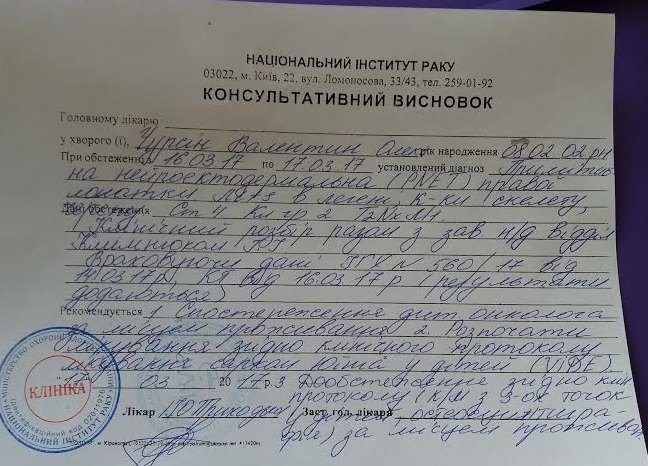 НАЦІОНАЛЬНИЙ ІНСТИТУТ РАКУ
03022, м. Київ, 22, вул. Ломоносова, 33/43, тел. 259-01-92
КОНСУЛЬТАТИВНИЙ ВИСНОВОК
Головному лікарю
у хворого (ї), Валентин рік народження 08 02 02 рн
При обстеженні з 16.03.17 по 17.03.17 установлений діагноз Примітив
на нейроектодермальна (PNET) правої
лопатки в легені, К-ки скелету,
Дані обстеження Ст 4 Кл гр 2
Клінічний розбір разом з зав н/д відділ
Климнюком
Враховуючи дані ПГЗ № 560/17 від
14.03.17р, КТ від 16.03.17 р (результати
додаються)
Рекомендується 1. Спостереження дит. онколога
за місцем проживання 2. Розпочати
лікування згідно клінічного протоколу
лікування сарком Юінга у дітей
03 2017р. 3 Дообстеження згідно клін
протоколу (к/м з 3-ох точок
Лікар Заст. гол. лікаря остеосцинтигра-
фія) за місцем проживан
КЛІНІКА
НАЦІОНАЛЬНИЙ ІНСТИТУТ РАКУ